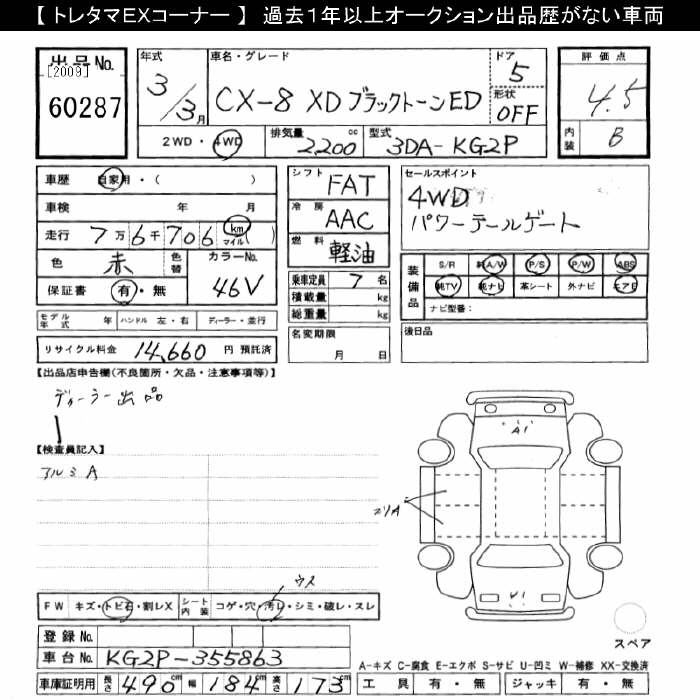 【 トレタマEXコーナー 】 過去1年以上オークション出品歴がない車両
出品No.
[2009]
60287
年式 3/3月
車名・グレード
CX-8 XDブラックトーンED
ドア 5
形状 OFF
評価点
4.5
内装 B
2WD・4WD
排気量 2,200 cc
型式 3DA-KG2P
車歴 自家用・( )
車検 年 月
走行 7万6千706 km マイル( )
色 赤 色替
カラーNo. 46V
保証書 有・無
モデル年式 年 ハンドル 左・右 ディーラー・並行
リサイクル料金 14,660 円 預託済
シフト FAT
冷房 AAC
燃料 軽油
乗車定員 7 名
積載量 kg
総重量 kg
名変期限
月 日
セールスポイント
4WD
パワーテールゲート
装備品
S/R 純A/W P/S P/W ABS
純TV 純ナビ 革シート 外ナビ エアB
ナビ型番:
後日品
【出品店申告欄(不良箇所・欠品・注意事項等)】
ディーラー出品
【検査員記入】
アルミA
A1
コリA
ウス
FW キズ・トビ石・割レX シート内装 コゲ・穴・汚レ・シミ・破レ・スレ
登録No.
車台No. KG2P-355863
車庫証明用 長さ 490cm 幅 184cm 高さ 173cm
スペア
A-キズ C-腐食 E-エクボ S-サビ U-凹ミ W-補修 XX-交換済
工具 有・無 ジャッキ 有・無